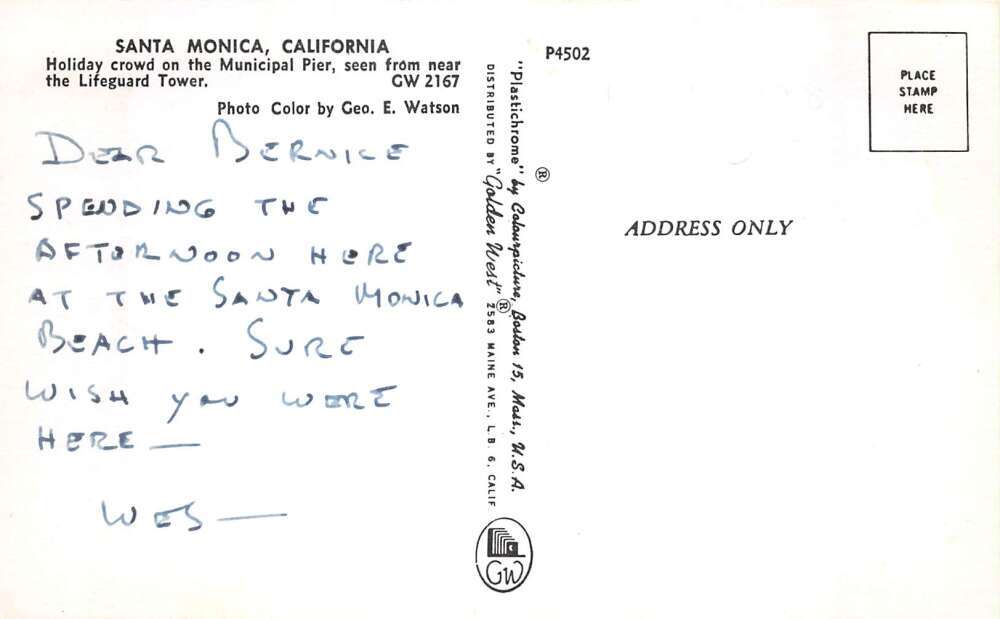 SANTA MONICA, CALIFORNIA
Holiday crowd on the Municipal Pier, seen from near
the Lifeguard Tower. GW 2167
Photo Color by Geo. E. Watson
DEAR BERNICE
SPENDING THE
AFTERNOON HERE
AT THE SANTA MONICA
BEACH. SURE
WISH YOU WERE
HERE —
WES —
"Plastichrome" by Colourpicture, Boston 15, Mass., U.S.A.
®
DISTRIBUTED BY "Golden West" ® 2583 MAINE AVE., L.B. 6, CALIF
GW
P4502
PLACE
STAMP
HERE
ADDRESS ONLY